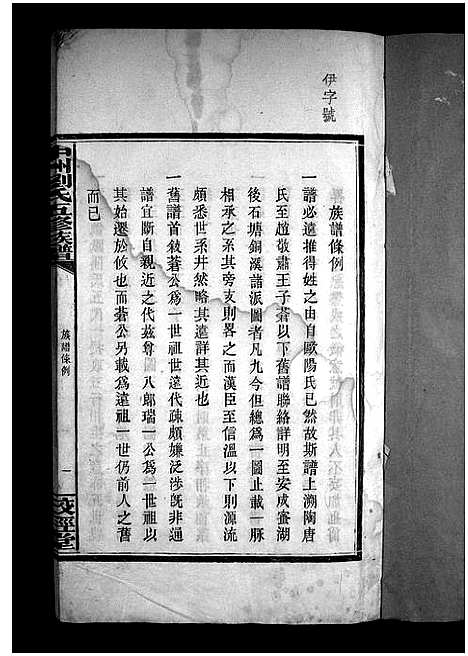 伊字號
族譜條例
一譜必遠推得姓之由自歐陽氏已然故斯譜上溯陶唐
氏至趙敬肅王子蒼以下舊譜聯絡詳明至安成蜜湖
後石塘銅溪譜派圖者凡九今但總為一圖止載一脈
相承之系其旁支則畧之而漢臣至信溫以下則源流
頗悉世系井然略其遠詳其近也
一舊譜首敘蒼公為一世祖世遠代疎頗嫌泛涉旣非通
譜宜斷自親近之代茲尊國八郞瑞一公為一世祖以
其始遷於攸也而蒼公另載為遠祖一世仍前人之舊
而已
劉氏五修族譜
族譜條例
一
校經堂